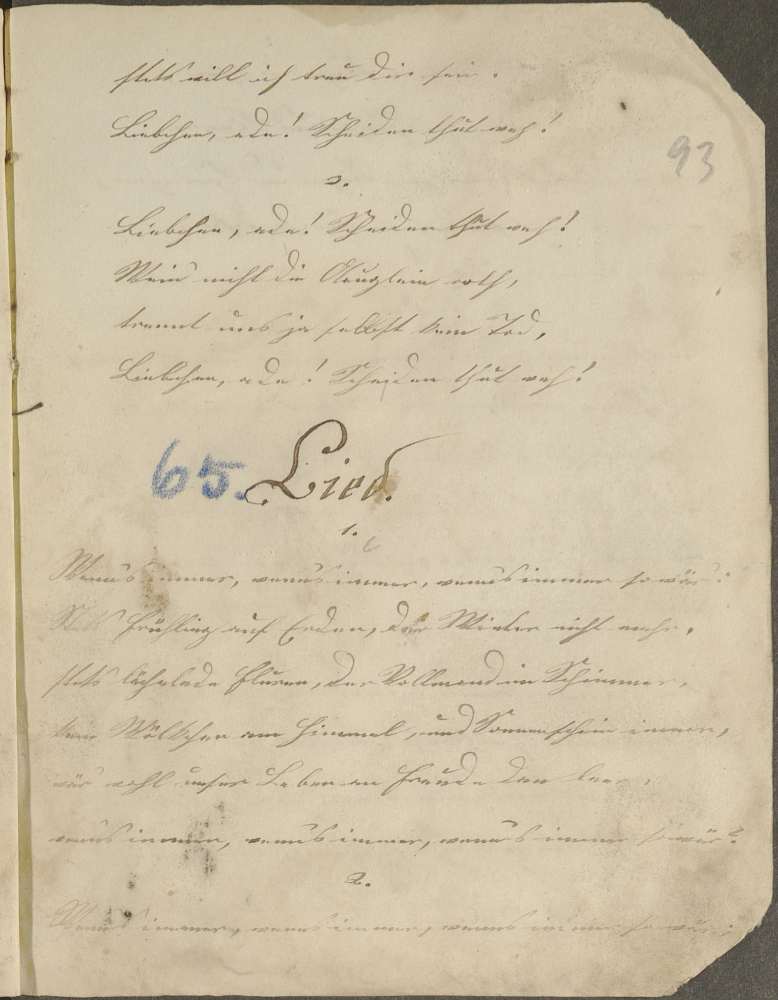 stets will ich treu dir sein.
Liebchen, ade! Scheiden thut weh!
93
3.
Liebchen, ade! Scheiden thut weh!
Wein' nicht die Äuglein roth,
trennt uns ja selbst kein Tod,
Liebchen, ade! Scheiden thut weh!
65. Lied.
1.
Wenns immer, wenns immer, wenns immer so wär:
Stets Frühling auf Erden, der Winter nicht mehr,
stets lächelnde Fluren, der Vollmond im Schimmer,
kein Wölkchen am Himmel, und Sonnenschein immer,
wär wohl unser Leben an Freude dan leer,
wenns immer, wenns immer, wenns immer so wär?
2.
Wenns immer, wenns immer, wenns immer so wär: